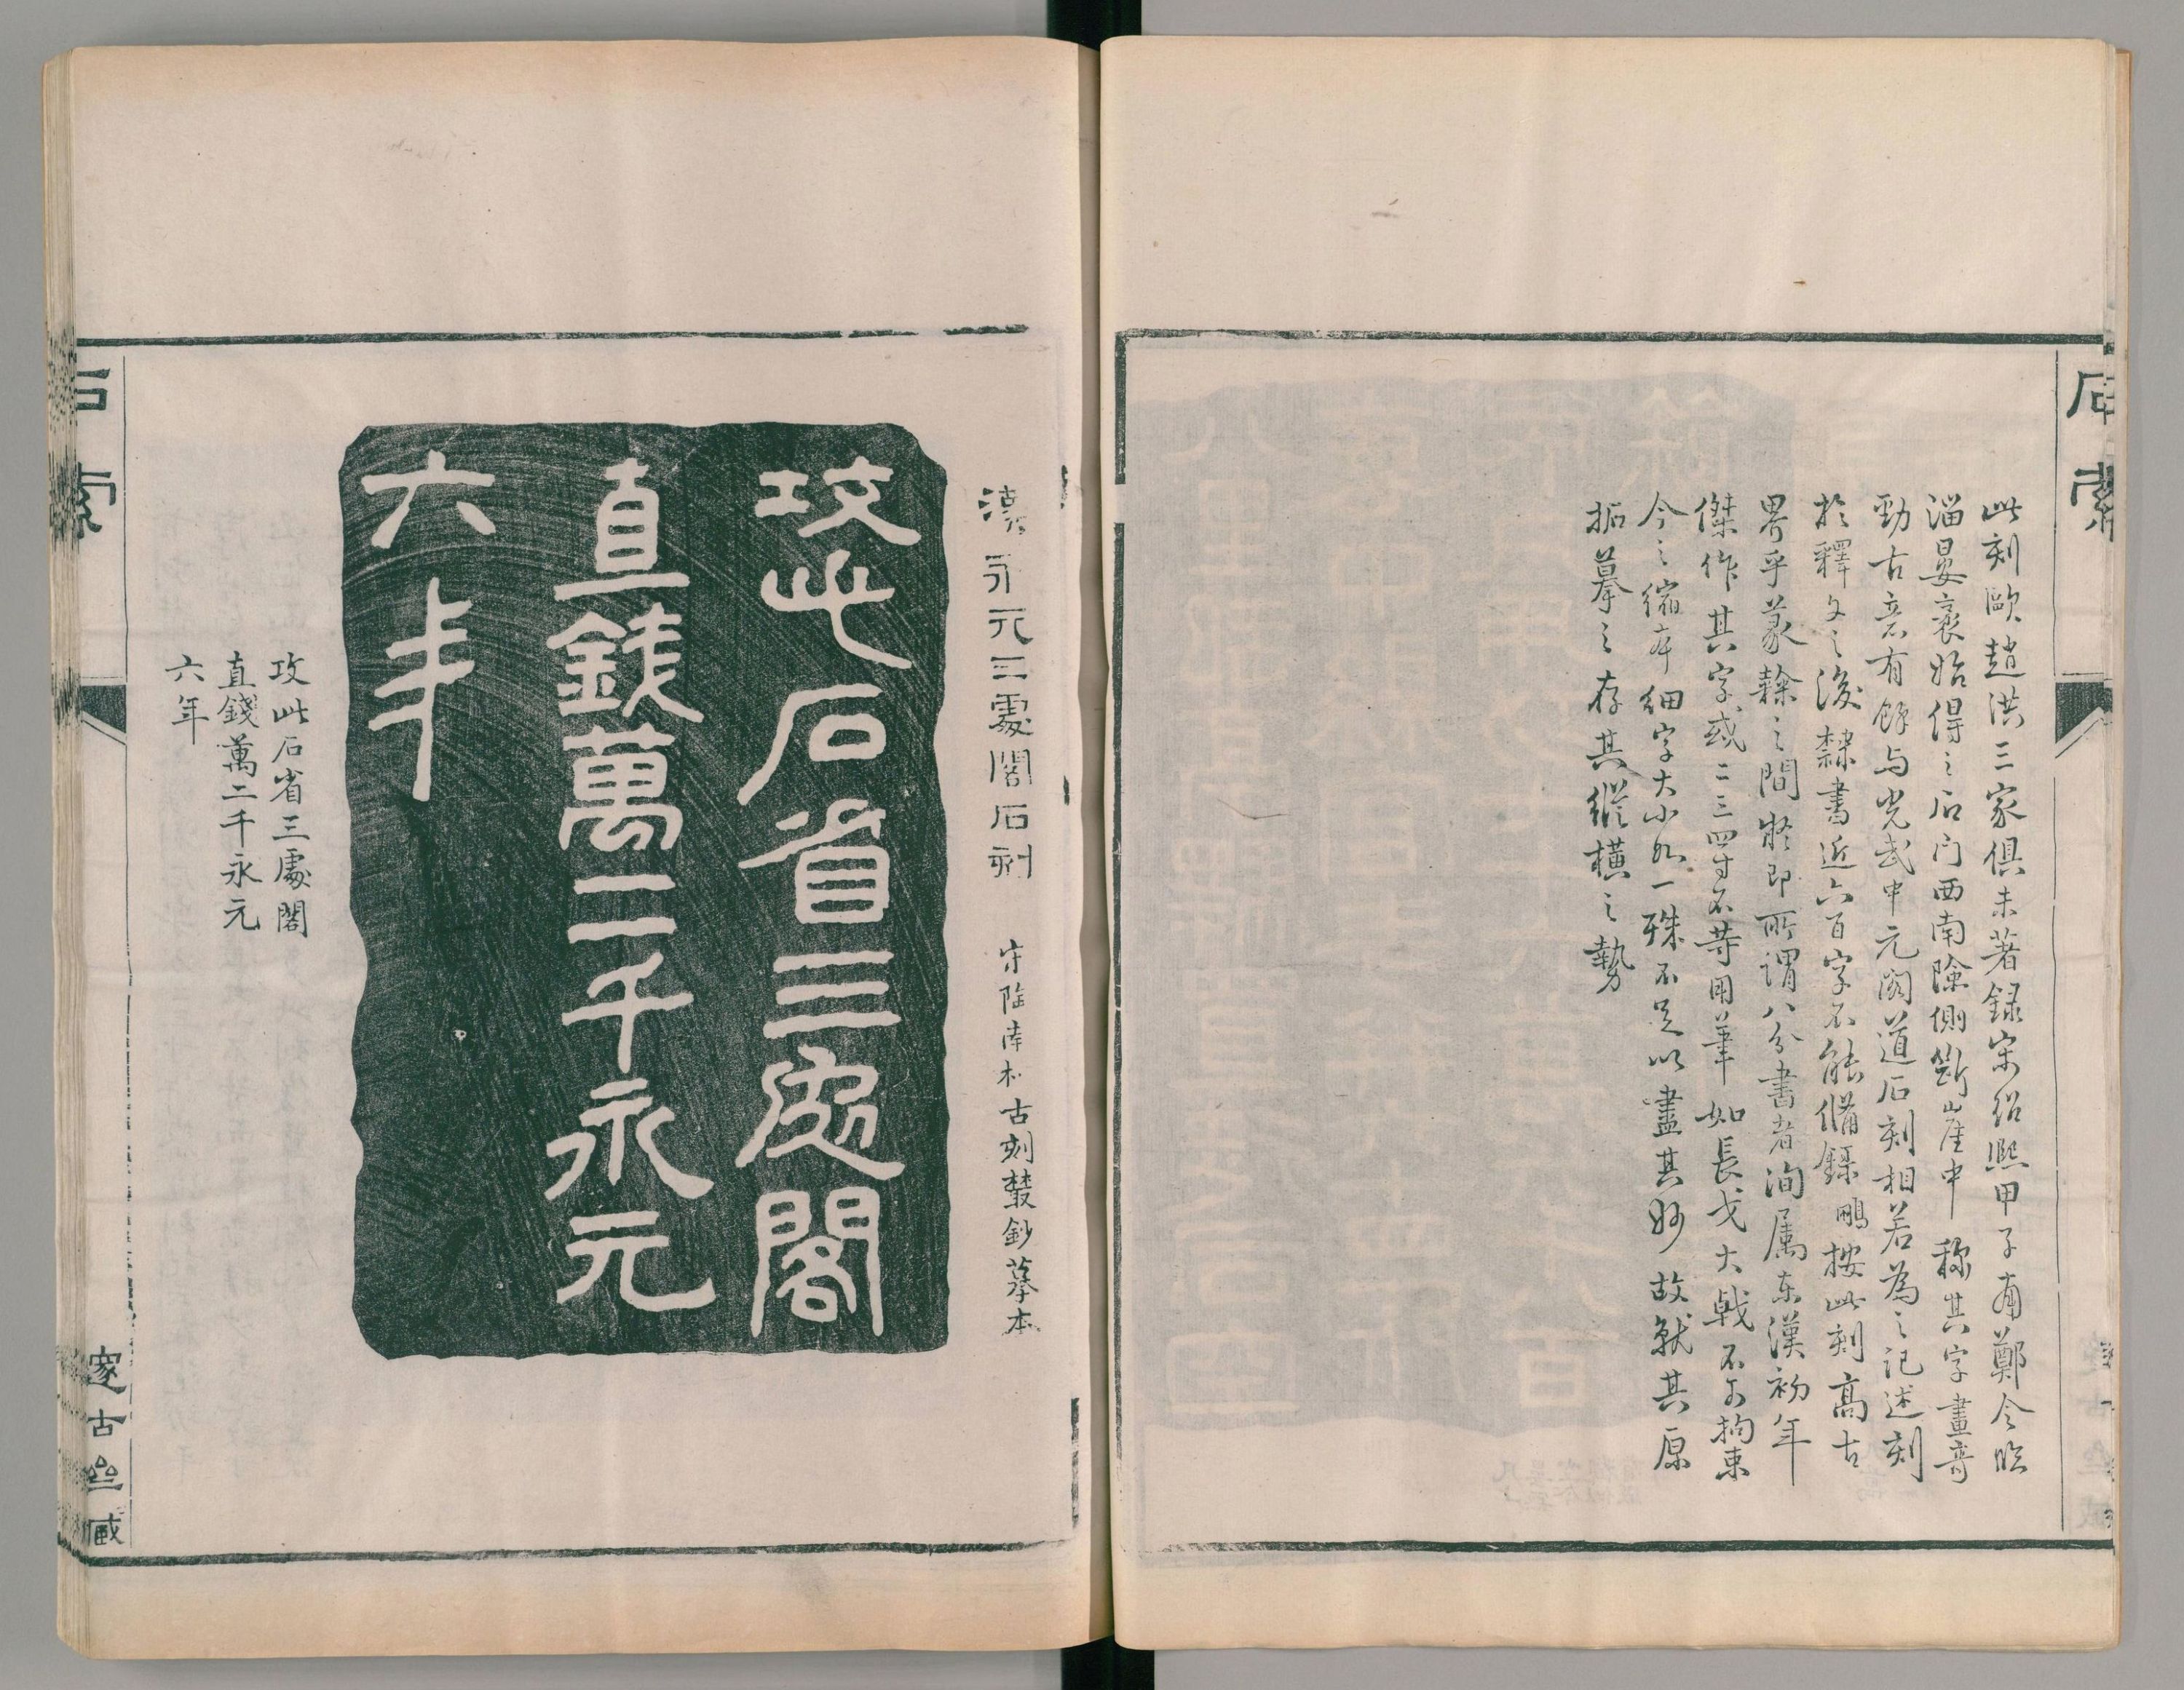 石索
此刻歐趙洪三家俱未著録宋紹熙甲子南鄭令臨
淄晏袤始得之石门西南險側斷崖中稱其字畫奇
勁古意有餘与光武中元閣道石刻相若為之記述刻
於釋文之後隸書近六百字不能備録鵬按此刻高古
畀乎篆隸之間歟即所謂八分書者洵属东漢初年
傑作其字或二三四寸不等用筆如長戈大戟不可拘束
今之縮本細字大小如一殊不足以盡其妙故就其原
拓摹之存其縱橫之勢
漢永元三處閣石刻 宋陶南村古刻叢鈔摹本
攻此石省三處閣
直錢萬二千永元
六年
攻此石省三處閣
直錢萬二千永元
六年
石索
邃古齋藏